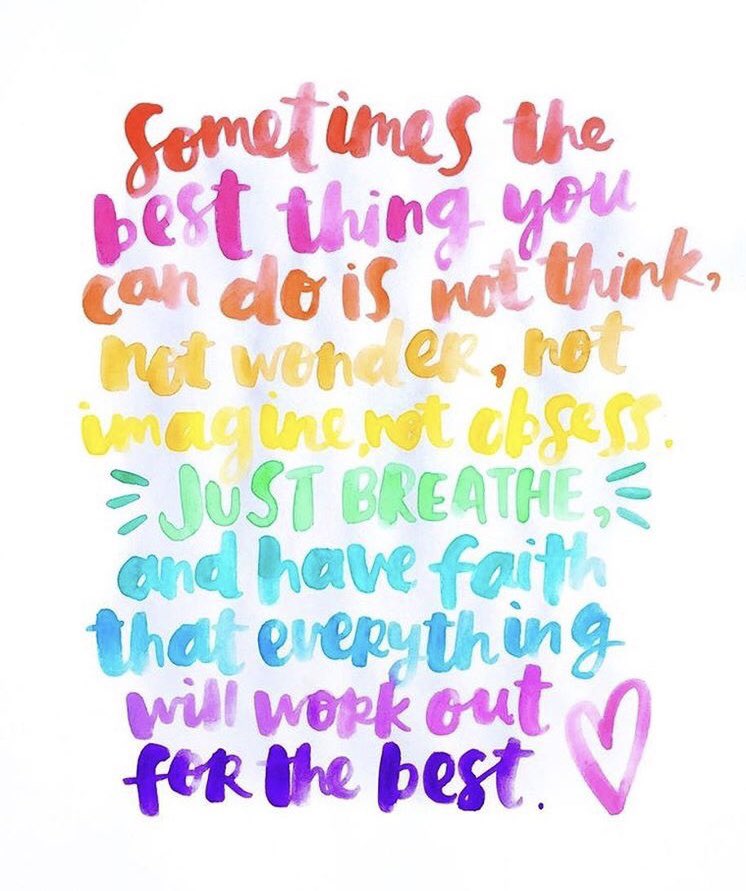 Sometimes the
best thing you
can do is not think,
not wonder, not
imagine, not obsess.
JUST BREATHE,
and have faith
that everything
will work out
for the best.